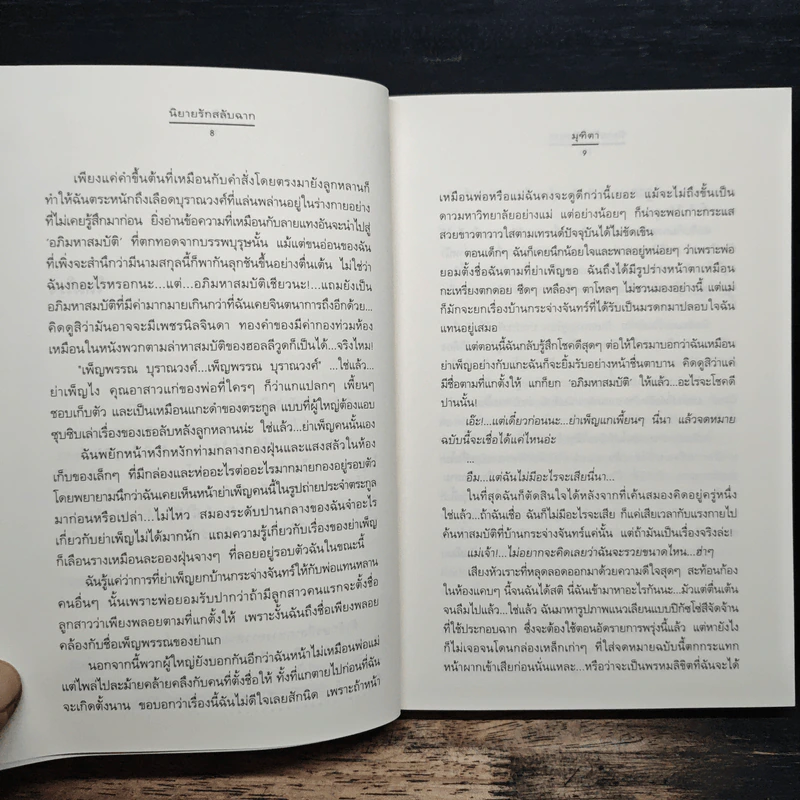 นิยายรักสลับฉาก
8
เพียงแค่คำขึ้นต้นที่เหมือนกับคำสั่งโดยตรงมายังลูกหลานก็
ทำให้ฉันตระหนักถึงเลือดบุราณวงศ์ที่แล่นพล่านอยู่ในร่างกายอย่าง
ที่ไม่เคยรู้สึกมาก่อน ยิ่งอ่านข้อความที่เหมือนกับลายแทงอันจะนำไปสู่
‘อภิมหาสมบัติ’ ที่ตกทอดจากบรรพบุรุษนั้น แม้แต่ขนอ่อนของฉัน
ที่เพิ่งจะสำนึกว่ามีนามสกุลนี้ก็พากันลุกชันขึ้นอย่างตื่นเต้น ไม่ใช่ว่า
ฉันงกอะไรหรอกนะ...แต่...อภิมหาสมบัติเชียวนะ!...แถมยังเป็น
อภิมหาสมบัติที่มีค่ามากมายเกินกว่าที่ฉันเคยจินตนาการถึงอีกด้วย...
คิดดูสิว่ามันอาจจะมีเพชรนิลจินดา ทองคำของมีค่ากองท่วมห้อง
เหมือนในหนังพวกตามล่าหาสมบัติของฮอลลีวูดก็เป็นได้...จริงไหม!
“เพ็ญพรรณ บุราณวงศ์...เพ็ญพรรณ บุราณวงศ์” ...ใช่แล้ว...
ย่าเพ็ญไง คุณอาสาวแก่ของพ่อที่ใครๆ ก็ว่าแกแปลกๆ เพี้ยนๆ
ชอบเก็บตัว และเป็นเหมือนแกะดำของตระกูล แบบที่ผู้ใหญ่ต้องแอบ
ซุบซิบเล่าเรื่องของเธอลับหลังลูกหลานน่ะ ใช่แล้ว...ย่าเพ็ญคนนั้นเอง
ฉันพยักหน้าหงึกหงักท่ามกลางกองฝุ่นและแสงสลัวในห้อง
เก็บของเล็กๆ ที่มีกล่องและห่ออะไรต่ออะไรมากมายกองอยู่รอบตัว
โดยพยายามนึกว่าฉันเคยเห็นหน้าย่าเพ็ญคนนี้ในรูปถ่ายประจำตระกูล
มาก่อนหรือเปล่า...ไม่ไหว สมองระดับปานกลางของฉันจำอะไร
เกี่ยวกับย่าเพ็ญไม่ได้มากนัก แถมความรู้เกี่ยวกับเรื่องของย่าเพ็ญ
ก็เลือนรางเหมือนละอองฝุ่นจางๆ ที่ลอยอยู่รอบตัวฉันในขณะนี้
ฉันรู้แค่ว่าการที่ย่าเพ็ญยกบ้านกระจ่างจันทร์ให้กับพ่อแทนหลาน
คนอื่นๆ นั้นเพราะพ่อยอมรับปากว่าถ้ามีลูกสาวคนแรกจะตั้งชื่อ
ลูกสาวว่าเพียงพลอยตามที่แกตั้งให้ เพราะงั้นฉันถึงชื่อเพียงพลอย
คล้องกับชื่อเพ็ญพรรณของย่าแก
นอกจากนี้พวกผู้ใหญ่ยังบอกกันอีกว่าฉันหน้าไม่เหมือนพ่อแม่
แต่ไพล่ไปละม้ายคล้ายคลึงกับคนที่ตั้งชื่อให้ ทั้งที่แกตายไปก่อนที่ฉัน
จะเกิดตั้งนาน ขอบอกว่าเรื่องนี้ฉันไม่ดีใจเลยสักนิด เพราะถ้าหน้า
มุทิตา
9
เหมือนพ่อหรือแม่ฉันคงจะดูดีกว่านี้เยอะ แม้จะไม่ถึงขั้นเป็น
ดาวมหาวิทยาลัยอย่างแม่ แต่อย่างน้อยๆ ก็น่าจะพอเกาะกระแส
สวยขาวตาวาวใสตามเทรนด์ปัจจุบันได้ไม่ขัดเขิน
ตอนเด็กๆ ฉันก็เคยนึกน้อยใจและพาลอยู่หน่อยๆ ว่าเพราะพ่อ
ยอมตั้งชื่อฉันตามที่ย่าเพ็ญขอ ฉันถึงได้มีรูปร่างหน้าตาเหมือน
กะเหรี่ยงตกดอย ซีดๆ เหลืองๆ ตาโหลๆ ไม่ชวนมองอย่างนี้ แต่แม่
ก็มักจะยกเรื่องบ้านกระจ่างจันทร์ที่ได้รับเป็นมรดกมาปลอบใจฉัน
แทนอยู่เสมอ
แต่ตอนนี้ฉันกลับรู้สึกโชคดีสุดๆ ต่อให้ใครมาบอกว่าฉันเหมือน
ย่าเพ็ญอย่างกับแกะฉันก็จะยิ้มรับอย่างหน้าชื่นตาบาน คิดดูสิว่าแค่
มีชื่อตามที่แกตั้งให้ แกก็ยก ‘อภิมหาสมบัติ’ ให้แล้ว...อะไรจะโชคดี
ปานนั้น!
เอ๊ะ!...แต่เดี๋ยวก่อนนะ...ย่าเพ็ญแกเพี้ยนๆ นี่นา แล้วจดหมาย
ฉบับนี้จะเชื่อได้แค่ไหนอ่ะ
...
อืม...แต่ฉันไม่มีอะไรจะเสียนี่นา...
ในที่สุดฉันก็ตัดสินใจได้หลังจากที่เค้นสมองคิดอยู่ครู่หนึ่ง
ใช่แล้ว...ถ้าฉันเชื่อ ฉันก็ไม่มีอะไรจะเสีย ก็แค่เสียเวลากับแรงกายไป
ค้นหาสมบัติที่บ้านกระจ่างจันทร์แค่นั้น แต่ถ้ามันเป็นเรื่องจริงล่ะ!
แม่เจ้า!...ไม่อยากจะคิดเลยว่าฉันจะรวยขนาดไหน...ฮ่าๆ
เสียงหัวเราะที่หลุดลอดออกมาด้วยความดีใจสุดๆ สะท้อนก้อง
ในห้องแคบๆ นี้จนฉันได้สติ นี่ฉันเข้ามาหาอะไรกันนะ...มัวแต่ตื่นเต้น
จนลืมไปแล้ว...ใช่แล้ว ฉันมาหารูปภาพแนวเลียนแบบปีกัซโซ่สีจัดจ้าน
ที่ใช้ประกอบฉาก ซึ่งจะต้องใช้ตอนอัดรายการพรุ่งนี้แล้ว แต่หายังไง
ก็ไม่เจอจนโดนกล่องเหล็กเก่าๆ ที่ใส่จดหมายฉบับนี้ตกกระแทก
หน้าผากเข้าเสียก่อนนั่นแหละ...หรือว่าจะเป็นพรหมลิขิตที่ฉันจะได้